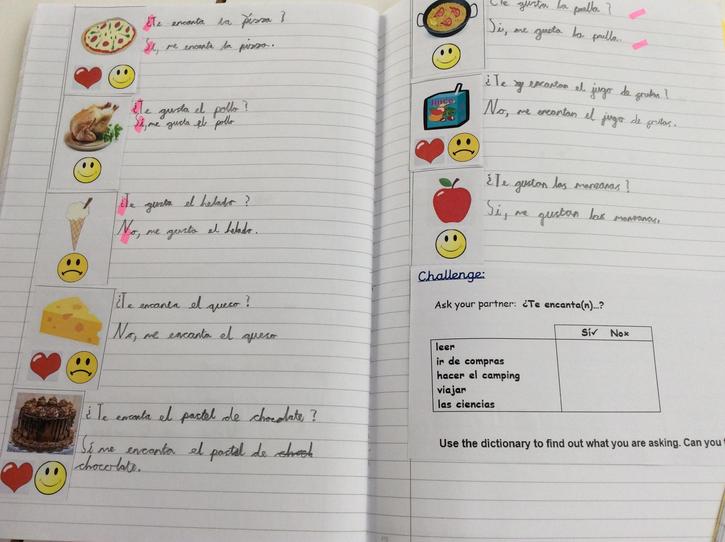 ¿Te encanta la pizza?
Sí, me encanta la pizza.
¿Te gusta el pollo?
Sí, me gusta el pollo
¿Te gusta el helado?
No, me gusta el helado.
¿Te encanta el queso?
No, me encanta el queso
¿Te encanta el pastel de chocolate?
Sí me encanta el pastel de
chocolate.
gusta la
Sí, me gusta la
¿Te encantan el jugo de frutas?
No, me encantan el jugo de frutas.
¿Te gustan las manzanas?
Sí, me gustan las manzanas.
Challenge:
Ask your partner: ¿Te encanta(n)...?
Sí✓ No×
leer
ir de compras
hacer el camping
viajar
las ciencias
Use the dictionary to find out what you are asking. Can you